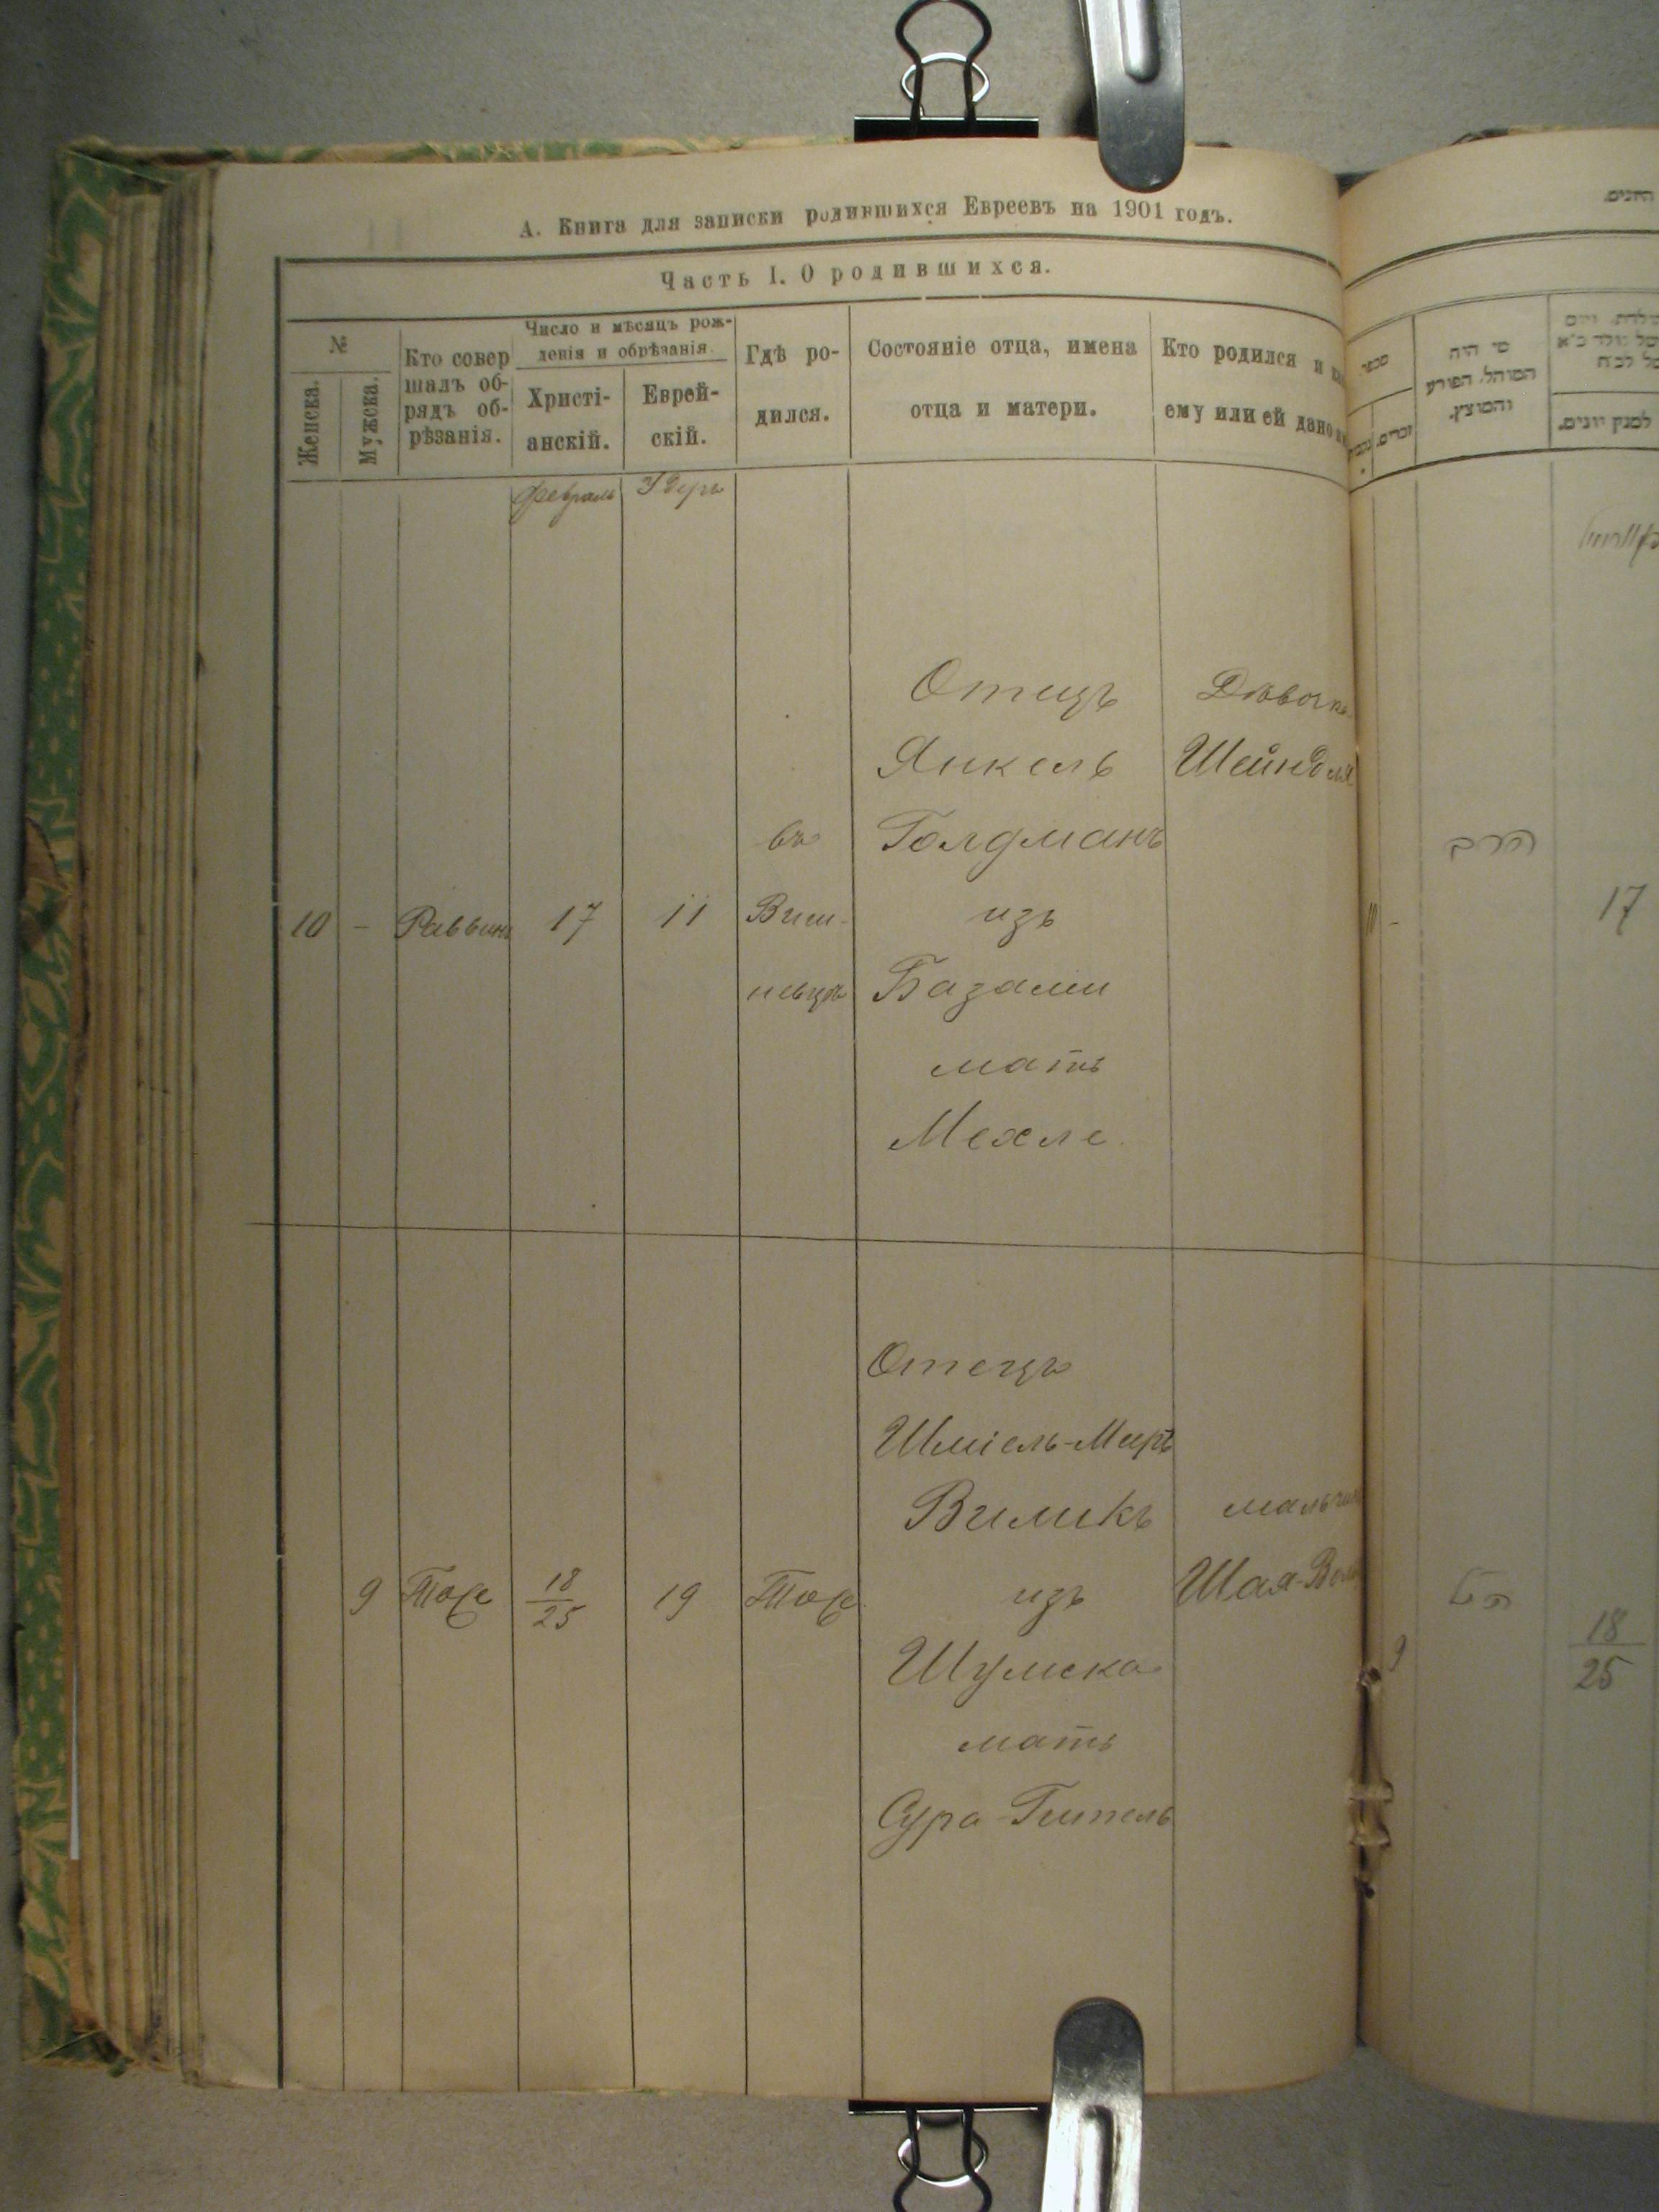 А. Книга для записки родившихся Евреевъ на 1901 годъ.
Часть I. О родившихся.
№
Женска.
Мужска.
Кто совер
шалъ об-
рядъ об-
рѣзанія.
Число и мѣсяцъ рож-
денія и обрѣзанія.
Христі-
анскій.
Еврей-
скій.
Гдѣ ро-
дился.
Состояніе отца, имена
отца и матери.
Кто родился и
ему или ей дано
февраль
Адеръ
10
-
Раввинъ
17
11
въ
Виш-
невцѣ
Отецъ
Янкель
Голдманъ
изъ
мать
Мехле.
Дѣвочка
Шейндля
9
Тоже
18
25
19
Тоже
Отецъ
Шміель-Меиръ
изъ
Шумска
мать
Сура-Гитель
мальчикъ
מספר
זכרים.
מי היה
המוהל, הפורע
והמוצץ.
למנין יונים.
הרב
17
9
18
25